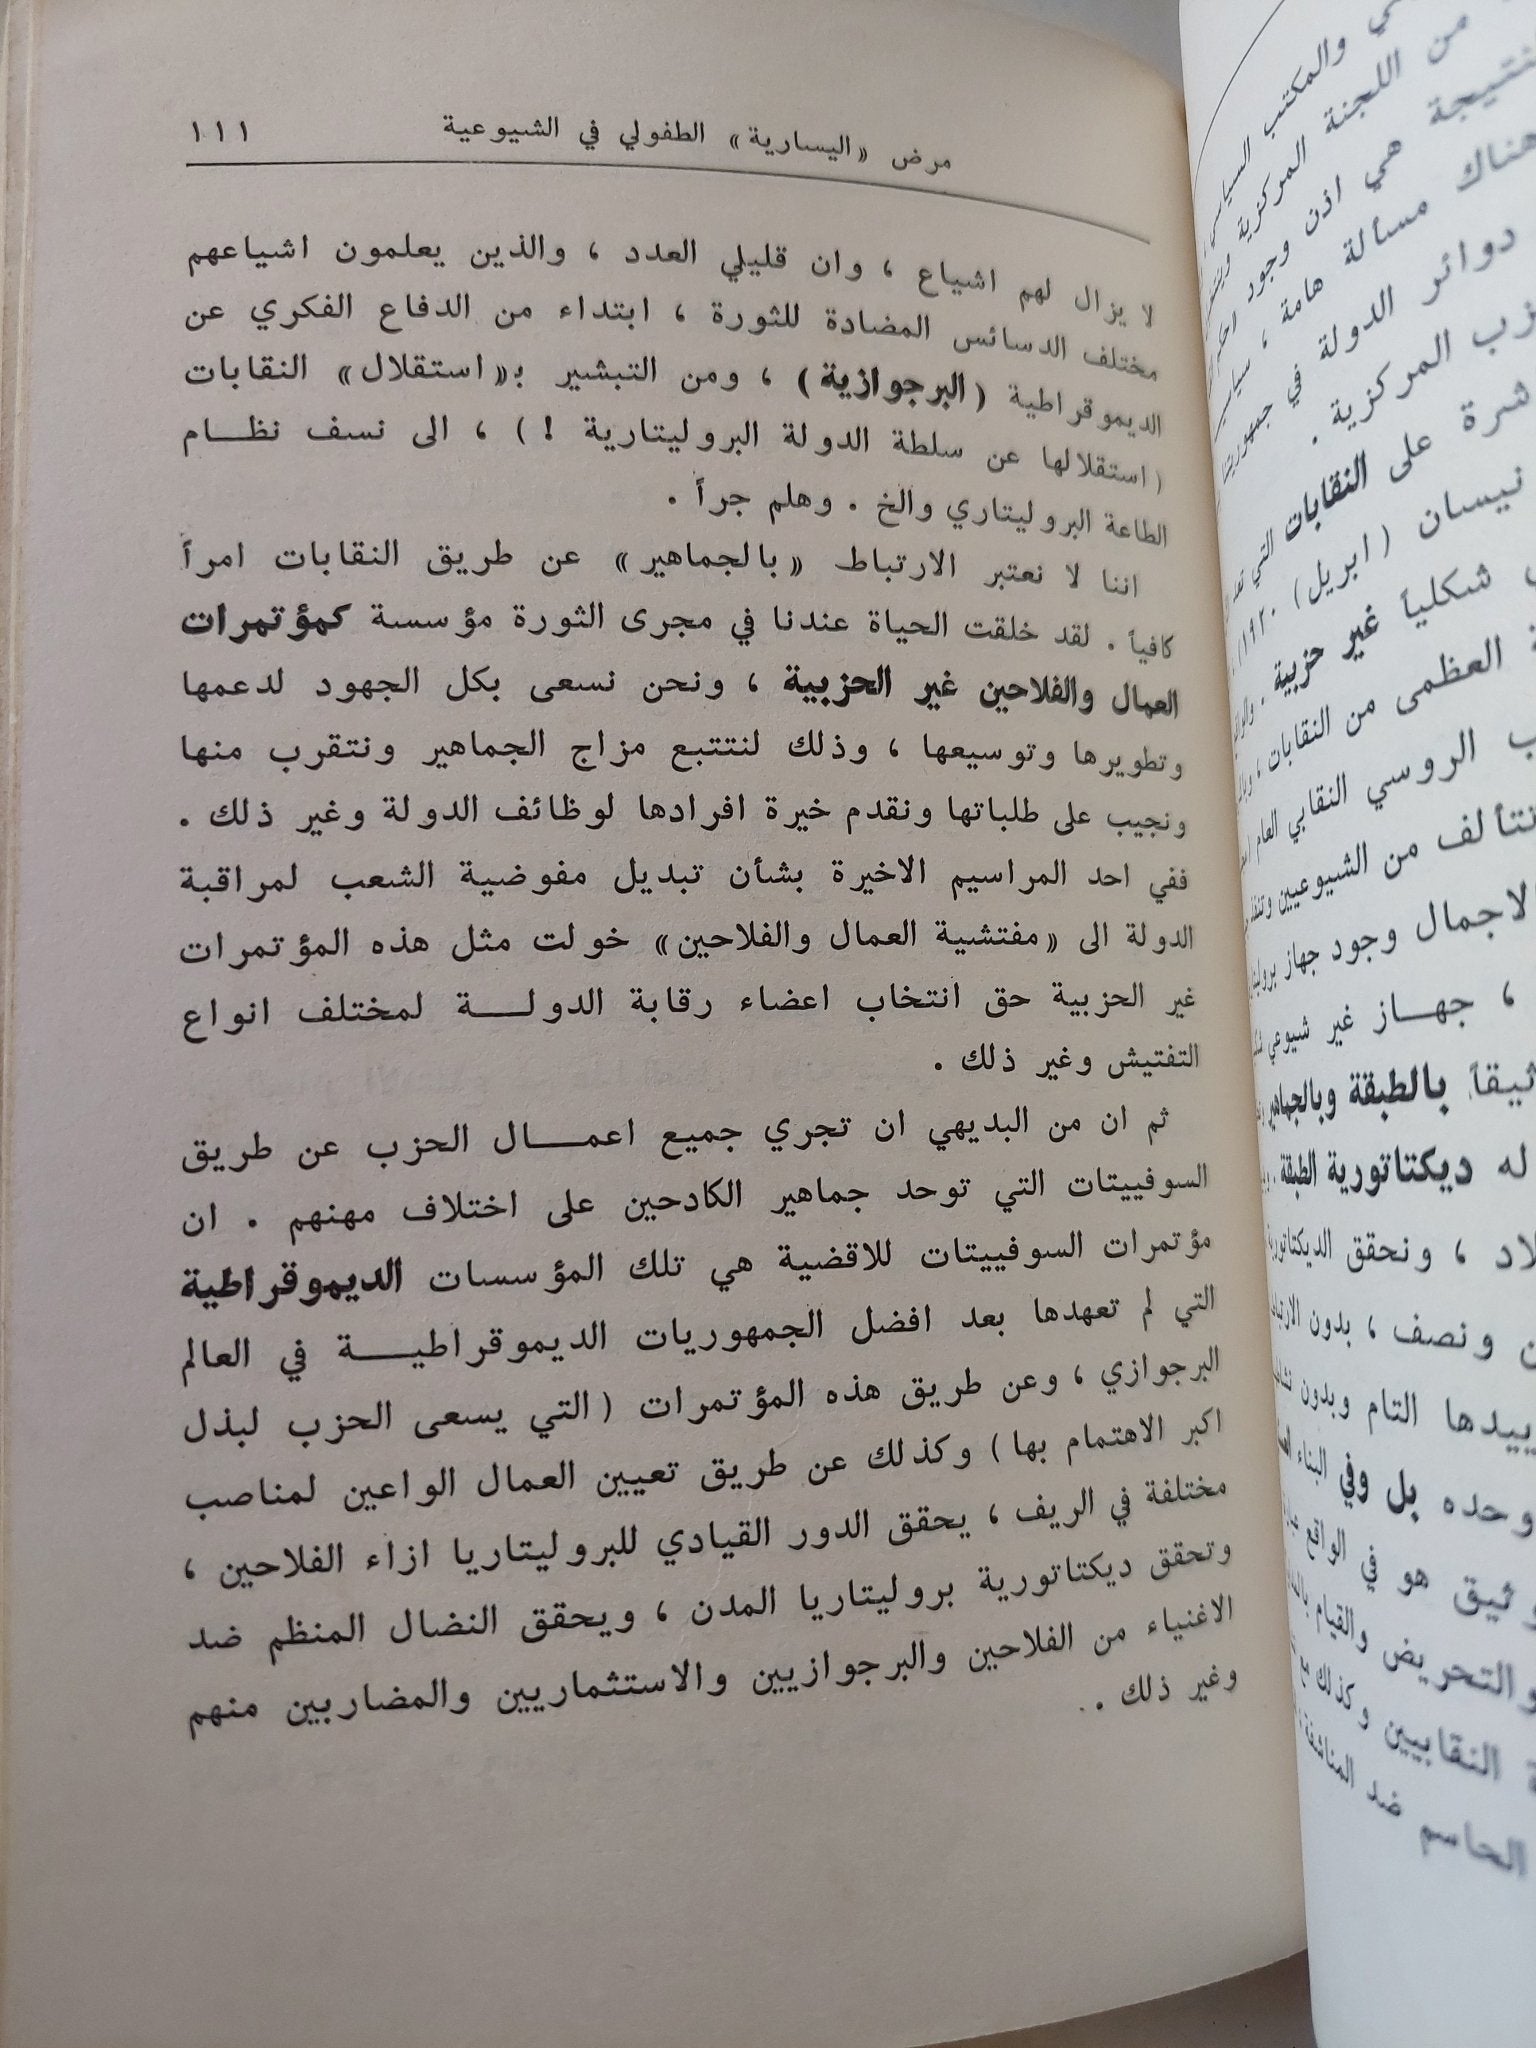 مرض «اليسارية» الطفولي في الشيوعية ١١١
لا يزال لهم اشياع ، وان قليلي العدد ، والذين يعلمون اشياعهم
مختلف الدسائس المضادة للثورة ، ابتداء من الدفاع الفكري عن
الديموقراطية (البرجوازية) ، ومن التبشير بـ«استقلال» النقابات
(استقلالها عن سلطة الدولة البروليتارية !) ، الى نسف نظـــام
الطاعة البروليتاري والخ . وهلم جراً .
اننا لا نعتبر الارتباط «بالجماهير» عن طريق النقابات امراً
كافياً . لقد خلقت الحياة عندنا في مجرى الثورة مؤسسة كمؤتمرات
العمال والفلاحين غير الحزبية ، ونحن نسعى بكل الجهود لدعمها
وتطويرها وتوسيعها ، وذلك لنتتبع مزاج الجماهير ونتقرب منها
ونجيب على طلباتها ونقدم خيرة افرادها لوظائف الدولة وغير ذلك .
ففي احد المراسيم الاخيرة بشأن تبديل مفوضية الشعب لمراقبة
الدولة الى «مفتشية العمال والفلاحين» خولت مثل هذه المؤتمرات
غير الحزبية حق انتخاب اعضاء رقابة الدولـــة لمختلف انواع
التفتيش وغير ذلك .
ثم ان من البديهي ان تجري جميع اعمـــال الحزب عن طريق
السوفييتات التي توحد جماهير الكادحين على اختلاف مهنهم . ان
مؤتمرات السوفييتات للاقضية هي تلك المؤسسات الديموقراطية
التي لم تعهدها بعد افضل الجمهوريات الديموقراطيـــة في العالم
البرجوازي ، وعن طريق هذه المؤتمرات (التي يسعى الحزب لبذل
اكبر الاهتمام بها) وكذلك عن طريق تعيين العمال الواعين لمناصب
مختلفة في الريف ، يحقق الدور القيادي للبروليتاريا ازاء الفلاحين ،
وتحقق ديكتاتورية بروليتاريا المدن ، ويحقق النضال المنظم ضد
الاغنياء من الفلاحين والبرجوازيين والاستثماريين والمضاربين منهم
وغير ذلك .
والمكتب السياسي
من اللجنة المركزية
نتيجة هي اذن وجود
هناك مسألة هامة ، سياسية
دوائر الدولة في جمهوريتنا
المركزية .
على النقابات التي
نيسان (ابريل) ١٩٢٠
شكلياً غير حزبية .
العظمى من النقابات ،
الروسي النقابي العام
تتألف من الشيوعيين
الاجمال وجود جهاز
، جهـــاز غير شيوعي
بالطبقة وبالجماهير
له ديكتاتورية الطبقة .
، ونحقق الديكتاتورية
ونصف ، بدون
التام وبدون
وحده بل وفي البناء
وثيق هو في الواقع
والتحريض والقيام
النقابيين وكذلك
ضد المناشفة